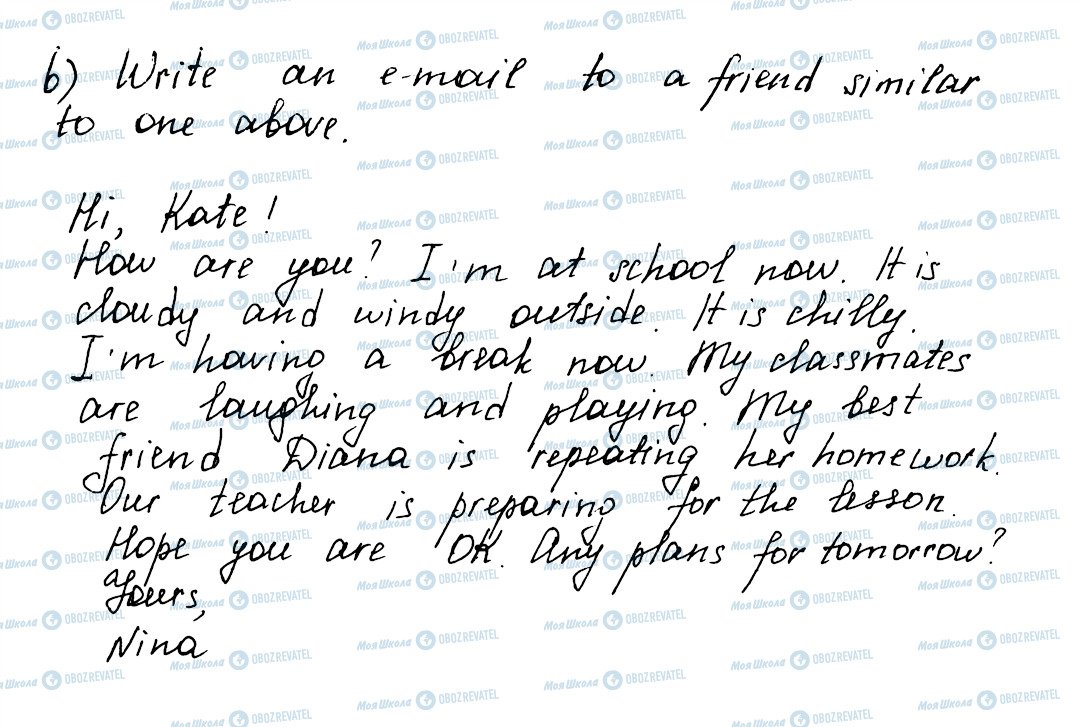 b) Write an e-mail to a friend similar
to one above.
Hi, Kate!
How are you? I'm at school now. It is
cloudy and windy outside. It is chilly.
I'm having a break now. My classmates
are laughing and playing. My best
friend Diana is repeating her homework.
Our teacher is preparing for the lesson.
Hope you are OK. Any plans for tomorrow?
Yours,
Nina